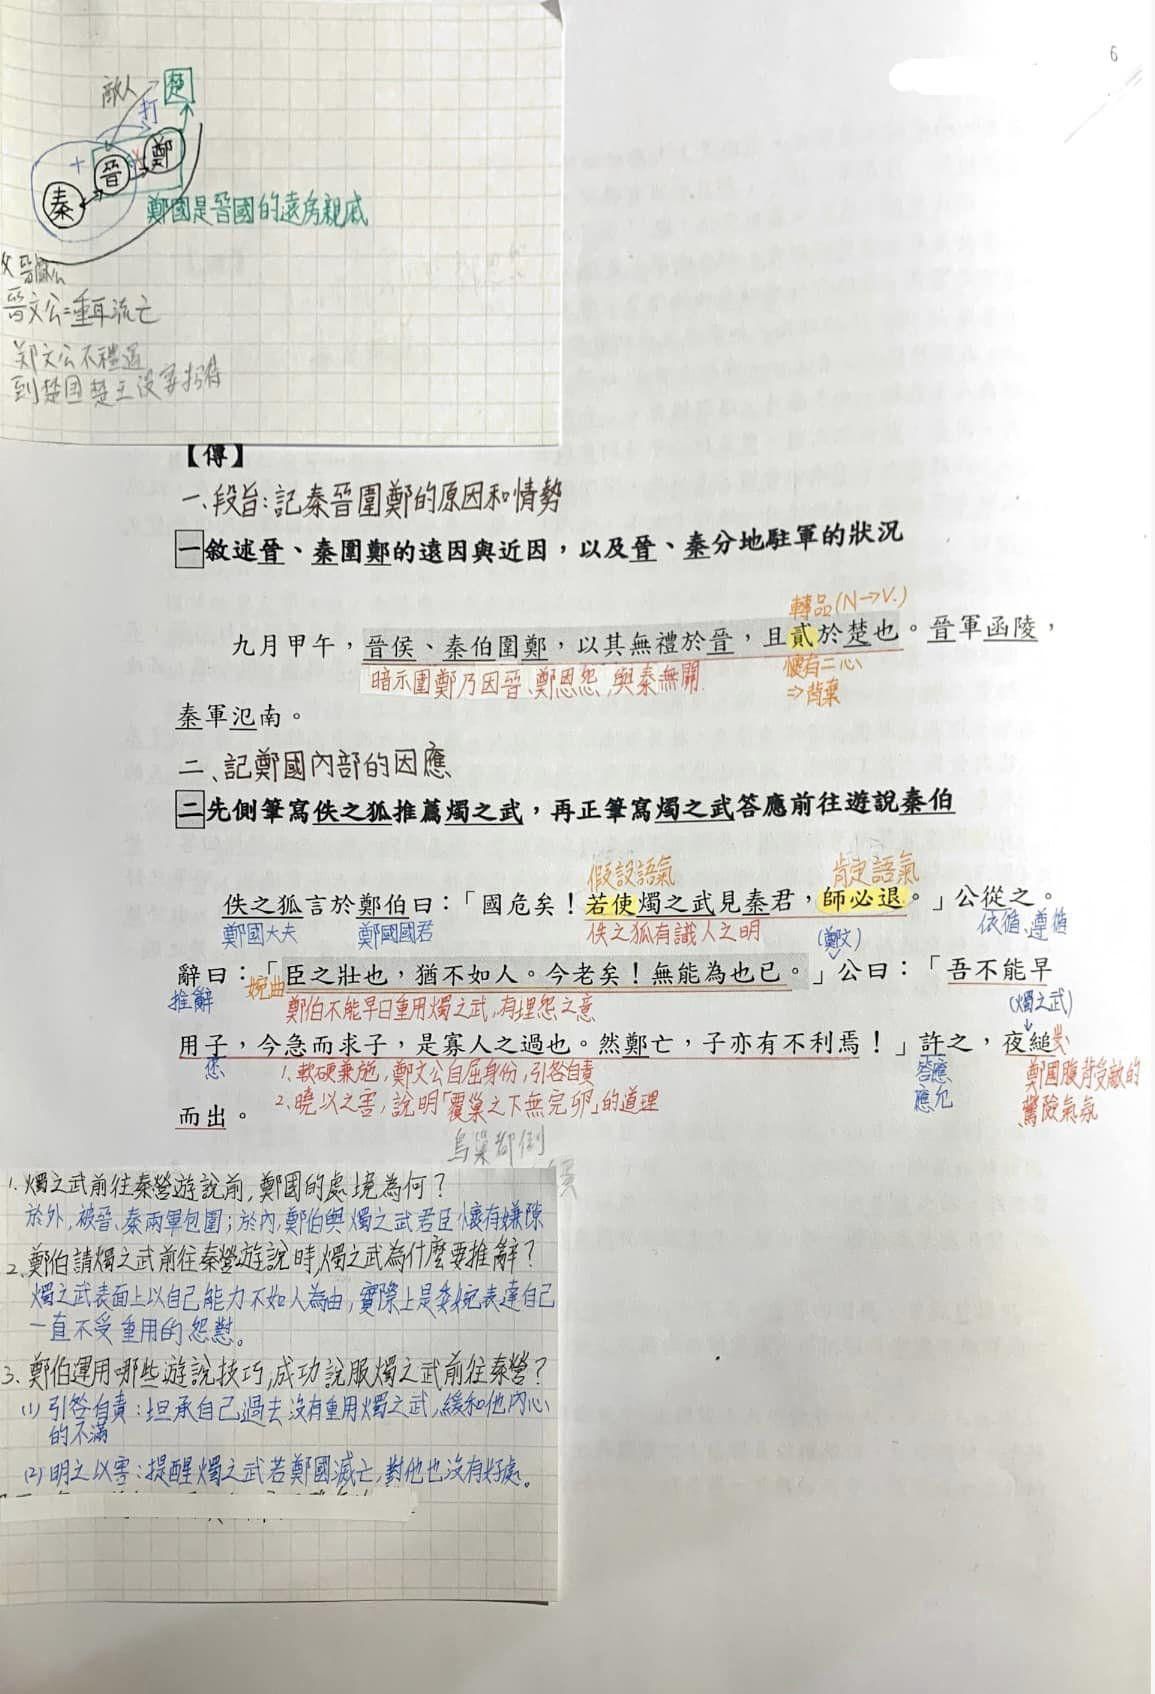 6
敵人
楚
打
+
晉
鄭
秦
鄭國是晉國的遠房親戚
晉文公=重耳流亡
鄭文公不禮遇
到楚國楚王沒事招待
【傳】
一、段旨:記秦晉圍鄭的原因和情勢
一敘述晉、秦圍鄭的遠因與近因，以及晉、秦分地駐軍的狀況
轉品(N→V.)
九月甲午，晉侯、秦伯圍鄭，以其無禮於晉，且貳於楚也。晉軍函陵，
暗示圍鄭乃因晉、鄭恩怨,與秦無關.
懷有二心
⇒背棄
秦軍氾南。
二、記鄭國內部的因應
二先側筆寫佚之狐推薦燭之武，再正筆寫燭之武答應前往遊說秦伯
假設語氣
肯定語氣
佚之狐言於鄭伯曰：「國危矣！若使燭之武見秦君，師必退。」公從之。
鄭國大夫
鄭國國君
佚之狐有識人之明
(鄭文)
依循、遵循
辭曰：「臣之壯也，猶不如人。今老矣！無能為也已。」公曰：「吾不能早
推辭
婉曲
鄭伯不能早日重用燭之武,有埋怨之意
(燭之武)
用子，今急而求子，是寡人之過也。然鄭亡，子亦有不利焉！」許之，夜縋
您
1.軟硬兼施,鄭文公自屈身份,引咎自責
答應
應允
鄭國腹背受敵的
驚險氣氛
2.曉以之害,說明「覆巢之下無完卵」的道理
而出。
鳥巢都倒
1.燭之武前往秦營遊說前,鄭國的處境為何？
於外,被晉、秦兩軍包圍；於內,鄭伯與燭之武君臣懷有嫌隙
2.鄭伯請燭之武前往秦營遊說時,燭之武為什麼要推辭？
燭之武表面上以自己能力不如人為由,實際上是委婉表達自己
一直不受重用的怨懟。
3.鄭伯運用哪些遊說技巧,成功說服燭之武前往秦營？
(1)引咎自責:坦承自己過去沒有重用燭之武,緩和他內心
的不滿
(2)明之以害:提醒燭之武若鄭國滅亡,對他也沒有好處。